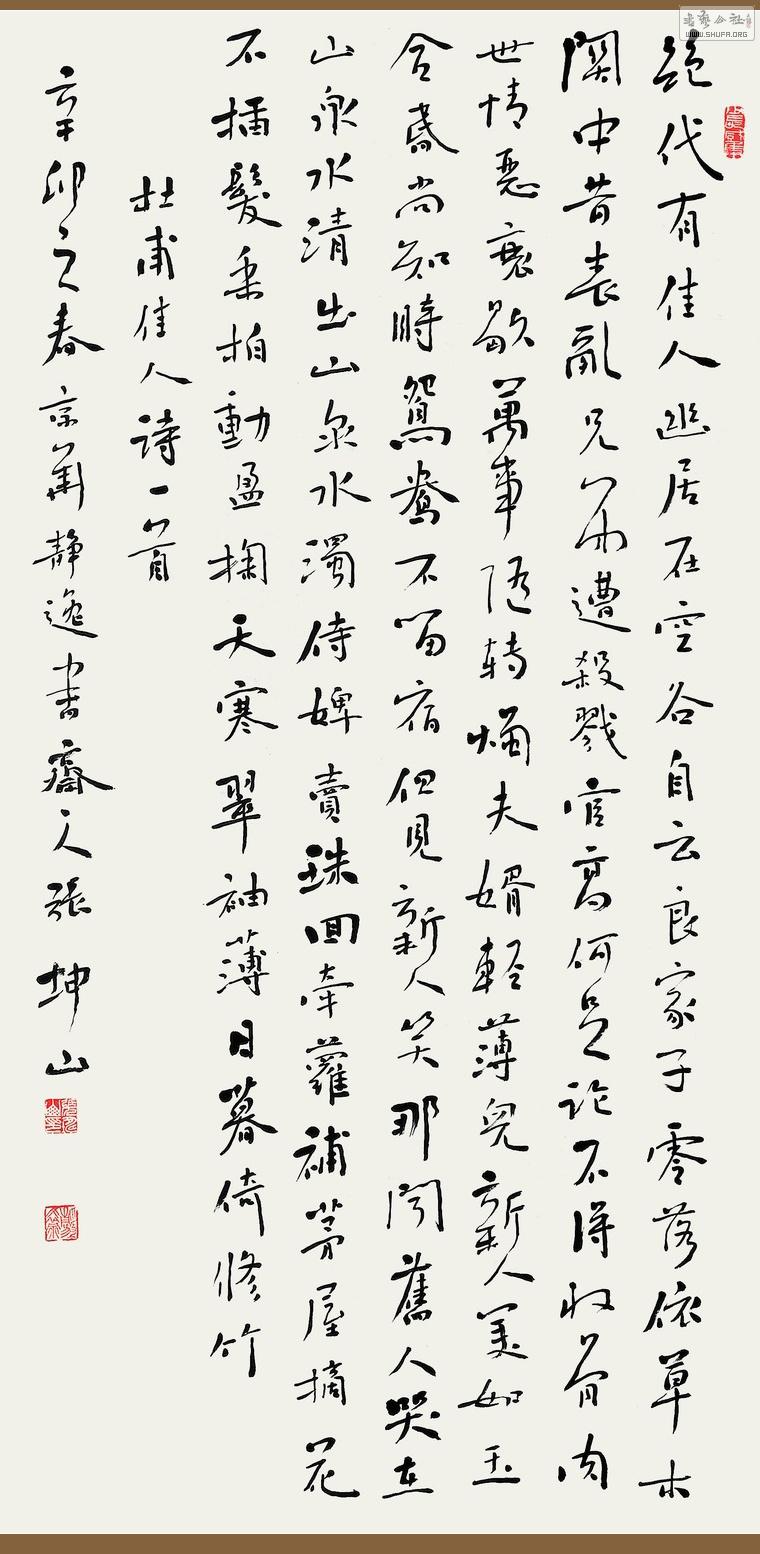 書藝公社
WWW.SHUFA.ORG
絕代有佳人幽居在空谷自云良家子零落依草木
關中昔喪亂兄弟遭殺戮官高何足論不得收骨肉
世情惡衰歇萬事隨轉燭夫婿輕薄兒新人美如玉
合昏尚知時鴛鴦不留宿但見新人笑那聞舊人哭在
山泉水清出山泉水濁侍婢賣珠回牽蘿補茅屋摘花
不插髮采柏動盈掬天寒翠袖薄日暮倚修竹
杜甫佳人詩一首
辛卯之春京華靜逸書齋人張坤山